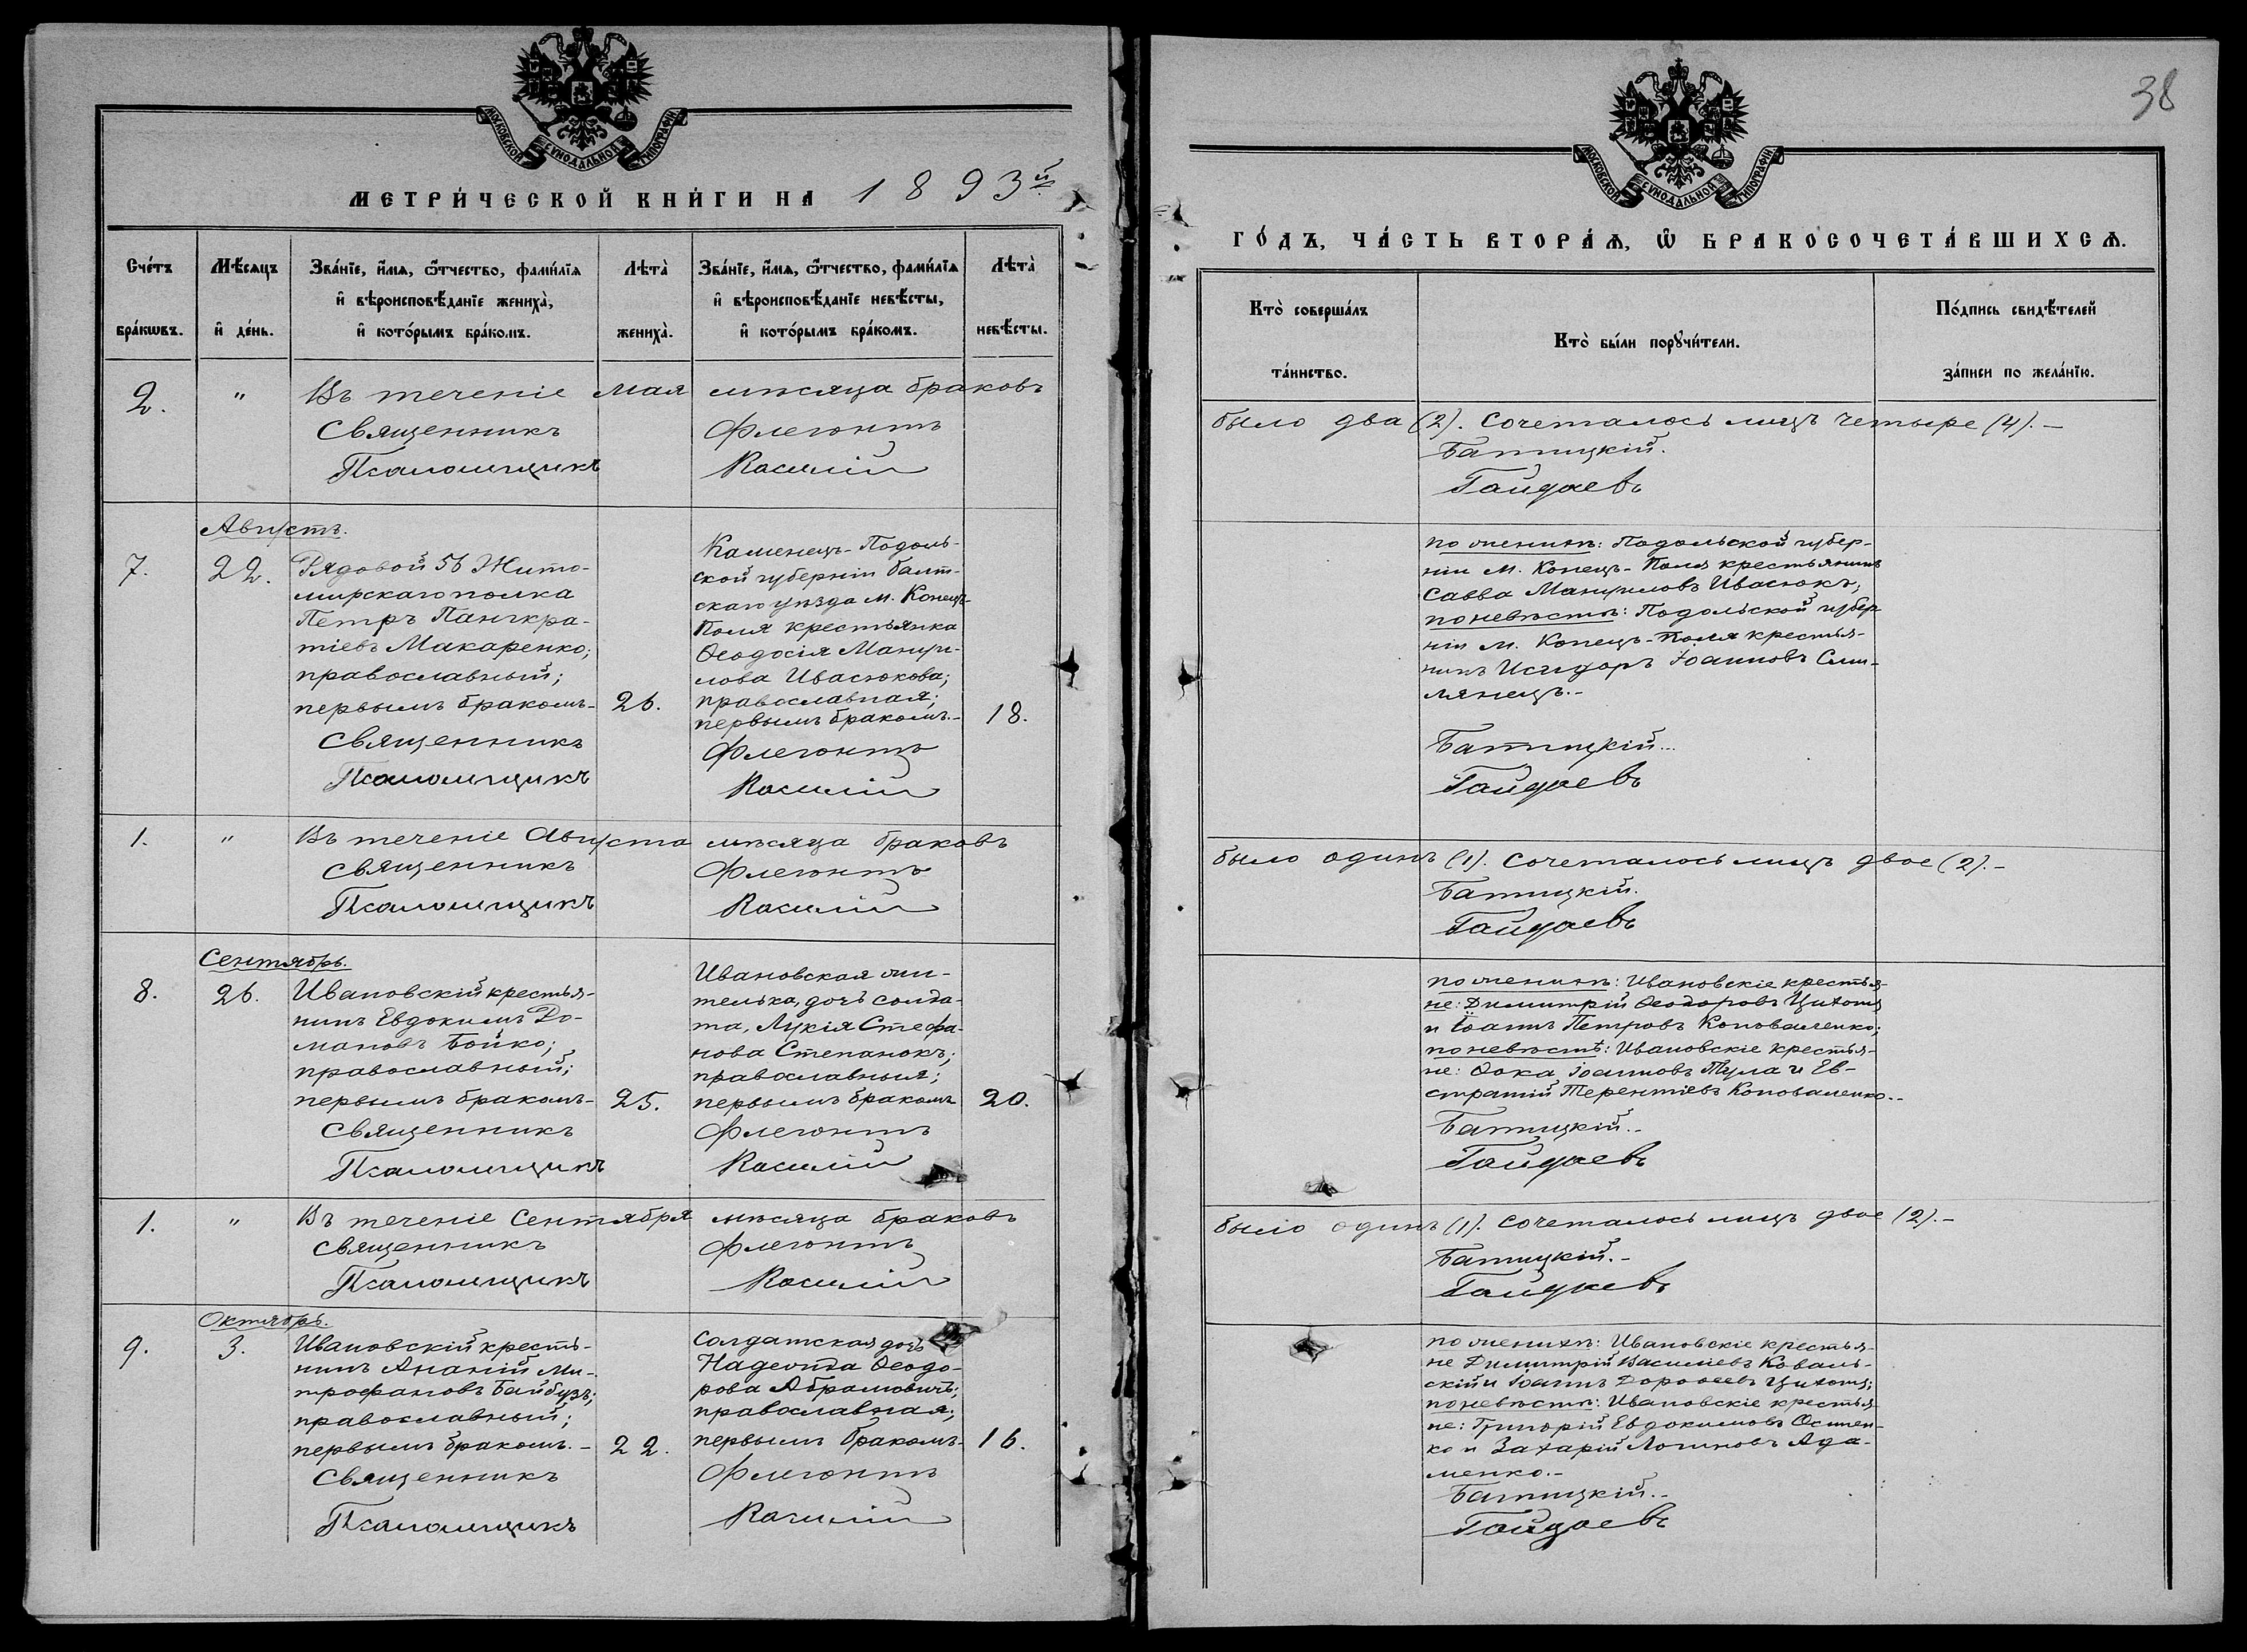 МОСКОВСКОЙ СѴНОДАЛЬНОЙ ТИПОГРАФІИ
МЕТРИ́ЧЕСКОЙ КНИ́ГИ НА 1893й
Сче́тъ бра́кѡвъ.
Мѣ́сяцъ и҆ де́нь.
Зва́нїе, и҆́мѧ, ѻ҆́тчество, фамѝлїѧ
и҆ вѣроисповѣ́данїе жениха̀,
и҆ кото́рымъ бра́комъ.
Лѣта̀ жениха̀.
Зва́нїе, и҆́мѧ, ѻ҆́тчество, фамѝлїѧ
и҆ вѣроисповѣ́данїе невѣ́сты,
и҆ кото́рымъ бра́комъ.
Лѣта̀ невѣ́сты.
2. " Въ теченіе мая мѣсяца браковъ
Священникъ Флегонтъ
Псаломщикъ Василій
Августъ.
7. 22.
Рядовой 56 Жито-
мирскаго полка
Петръ Панкра-
тіевъ Макаренко;
православный;
первымъ бракомъ- 26.
Каменецъ-Подоль-
ской губерніи Балт-
скаго уѣзда м. Конецъ-
Поля крестьянка
Ѳеодосія Мануи-
лова Ивасюкова;
православная;
первымъ бракомъ.- 18.
Священникъ Флегонтъ
Псаломщикъ Василій
1. " Въ теченіе Августа мѣсяца браковъ
Священникъ Флегонтъ
Псаломщикъ Василій
Сентябрь.
8. 26.
Ивановскій крестья-
нинъ Евдокимъ До-
мановъ Бойко;
православный;
первымъ бракомъ- 25.
Ивановская жи-
телька, дочь солда-
та, Лукія Стефа-
нова Степанокъ;
православныя;
первымъ бракомъ 20.
Священникъ Флегонтъ
Псаломщикъ Василій
1. " Въ теченіе Сентября мѣсяца браковъ
Священникъ Флегонтъ
Псаломщикъ Василій
Октябрь.
9. 3.
Ивановскій кресть-
нинъ Ананій Ми-
трофановъ Байбузъ;
православный;
первымъ бракомъ.- 22.
Солдатская дочь
Надежда Ѳеодо-
рова Абрамовичъ;
православная;
первымъ бракомъ- 16.
Священникъ Флегонтъ
Псаломщикъ Василій
38
МОСКОВСКОЙ СѴНОДАЛЬНОЙ ТИПОГРАФІИ
ГО́ДЪ, ЧА́СТЬ ВТОРА́Ѧ, Ѽ БРАКОСОЧЕТА́ВШИХСѦ.
Кто̀ соверша́лъ
та́инство.
Кто̀ бы́ли порꙋчи́тели.
По́дпись свидѣ́телей
за́писи по жела́нїю.
было два (2). Сочеталось лицъ четыре (4).-
Батицкій.
Гайдаевъ
по женихѣ: Подольской губер-
ніи м. Конецъ-Поля крестьянинъ
Савва Мануиловъ Ивасюкъ;
по невѣстѣ: Подольской губер
ніи м. Конецъ-Поля крестья-
нинъ Исидоръ Іоанновъ Сми-
лянецъ.-
Батицкій...
Гайдаевъ
было одинъ (1). Сочеталось лицъ двое (2).-
Батицкій.
Гайдаевъ
по женихѣ: Ивановскіе крестья-
не: Димитрій Ѳеодоровъ Цихоцъ
и Іоаннъ Петровъ Коноваленко;
по невѣстѣ: Ивановскіе крестья-
не: Ѳока Іоанновъ Тула и Ев-
стратій Терентіевъ Коноваленко.-
Батицкій.-
Гайдаевъ
было одинъ (1). Сочеталось лицъ двое (2).-
Батицкій.-
Гайдаевъ
по женихѣ: Ивановскіе крестья-
не Димитрій Василіевъ Коваль-
скій и Іоаннъ Дороѳеевъ Цихоцъ;
по невѣстѣ: Ивановскіе крестья
не: Григорій Евдокимовъ Осипен-
ко и Захарій Логиновъ Ада-
менко.-
Батицкій.-
Гайдаевъ